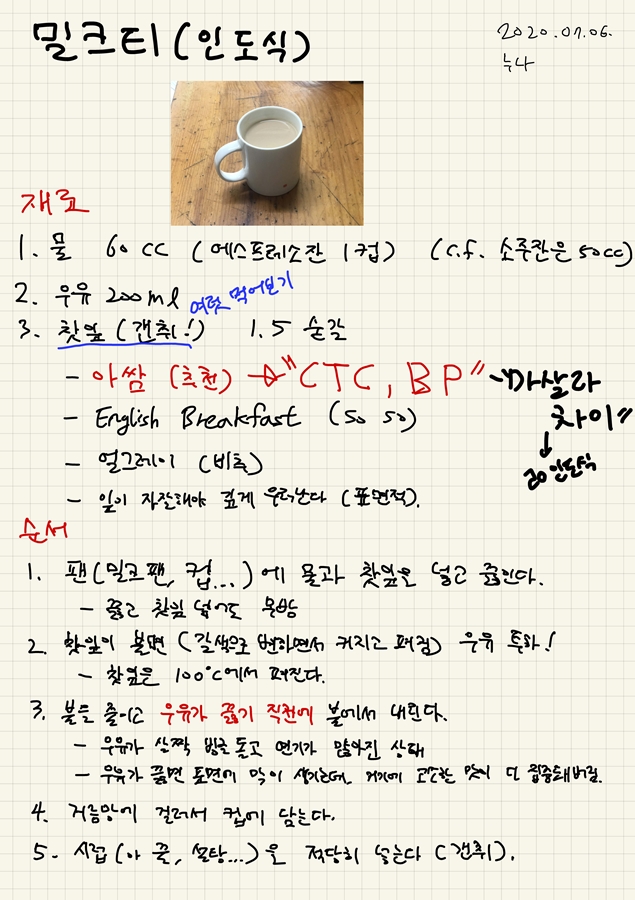 밀크티 (인도식)
2020.07.06.
누나
재료
1. 물 60 cc (에스프레소잔 1컵) (c.f. 소주잔은 50cc)
2. 우유 200ml
여럿 먹어보기
3. 찻잎 (갠취!) 1.5 숟갈
- 아쌈 (추천) → "CTC, BP"
~"마살라
차이"
↓
인도식
- English Breakfast (so so)
- 얼그레이 (비추)
- 잎이 자잘해야 깊게 우러난다 (표면적).
순서
1. 팬(밀크팬, 컵...)에 물과 찻잎을 넣고 끓인다.
- 끓고 찻잎 넣어도 무방
2. 찻잎이 불면 (갈색으로 변하면서 커지고 펴짐) 우유 투하!
- 찻잎은 100°C에서 펴진다.
3. 불을 줄이고 우유가 끓기 직전에 불에서 내린다.
- 우유가 살짝 빙글 돌고 연기가 많아진 상태
- 우유가 끓면 표면에 막이 생기는데, 거기에 고소한 맛이 다 집중돼버림.
4. 거름망에 걸러서 컵에 담는다.
5. 시럽 (아 꿀, 설탕...)을 적당히 넣는다 (갠취).